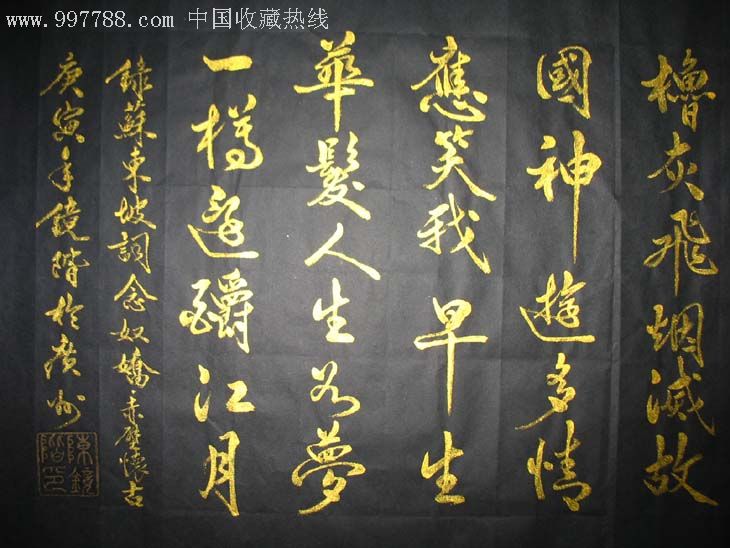 www.997788.com 中国收藏热线
櫓灰飛烟滅故
國神遊多情
應笑我早生
華髮人生若夢
一樽還酹江月
錄蘇東坡詞念奴嬌赤壁懷古
庚寅年鏡階於廣州
陳鏡階印